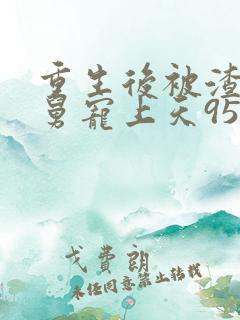 重生後被渣
舅寵上天95
戈費朗
未經同意禁止轉載